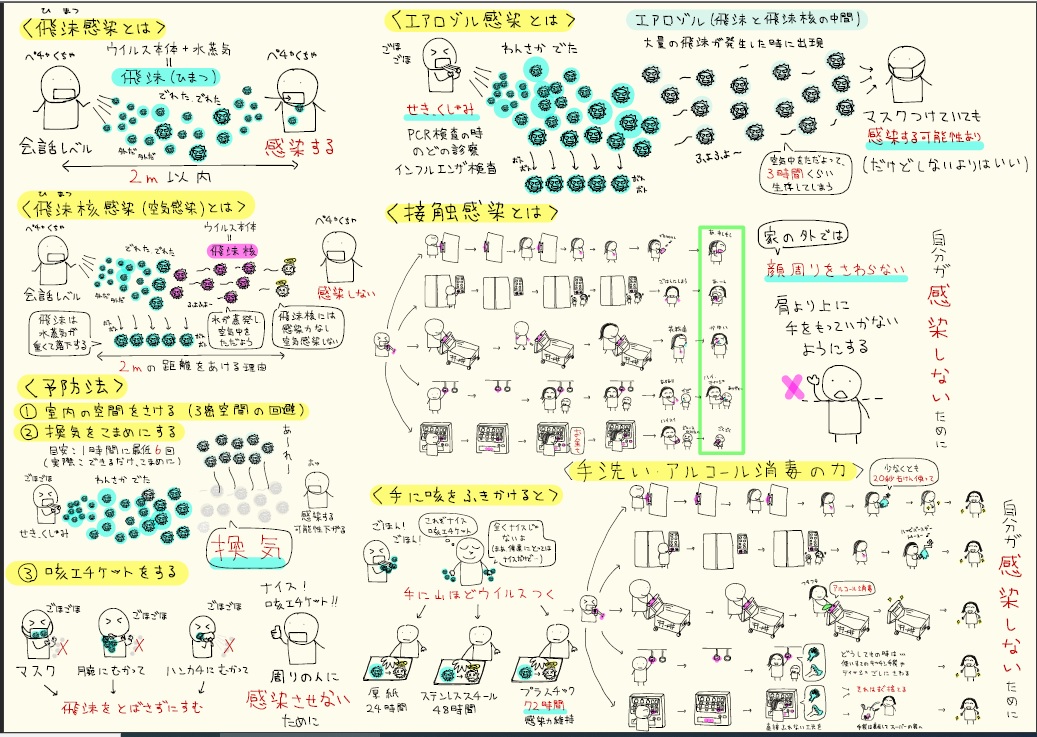 ひ まつ
〈飛沫感染とは〉
ペチャくちゃ
ウイルス本体+水蒸気
=
飛沫(ひまつ)
でれた でれた
ペチャくちゃ
会話レベル
感染する
2m以内
〈エアロゾル感染とは〉
エアロゾル(飛沫と飛沫核の中間)
大量の飛沫が発生した時に出現
ごほ
ごほ
わんさか でた
せき、くしゃみ
PCR検査の時
のどの診察
インフルエンザ検査
ふよふよ〜
空気中をただよって、
3時間くらい
生存してしまう
マスクつけていても
感染する可能性あり
(だけどしないよりはいい)
ひ まつ
〈飛沫核感染(空気感染)とは〉
ペチャくちゃ
ウイルス本体
=
飛沫核
でれた でれた
ペチャくちゃ
会話レベル
感染しない
飛沫は
水蒸気が
重くて落下する
水が蒸発し
空気中を
ただよう
飛沫核には
感染力なし
空気感染しない
2mの距離をあける理由
〈接触感染とは〉
家の外では
顔周りをさわらない
肩より上に
手をもっていかない
ようにする
自分が感染しないために
〈予防法〉
① 室内の空間をさける(3密空間の回避)
② 換気をこまめにする
目安:1時間に最低6回
(実際:できるだけ、こまめに)
あーれー!
ごほごほ
わんさか でた
せき、くしゃみ
換気
感染する
可能性下がる
③ 咳エチケットをする
ごほごほ
ごほごほ
ごほごほ
ナイス!
咳エチケット!!
マスク
ハンカチにむかって
飛沫をとばさずにすむ
周りの人に
感染させない
ために
〈手に咳をふきかけると〉
ごほん!
ごほん!
これぞナイス
咳エチケット
全くナイスじゃ
ないよ
手に山ほどウイルスつく
厚紙
24時間
ステンレススチール
48時間
プラスチック
72時間
感染力維持
〈手洗い・アルコール消毒の力〉
少なくとも
20秒石けん使って
アルコール消毒
どうしてもの時は…
自分が感染しないために